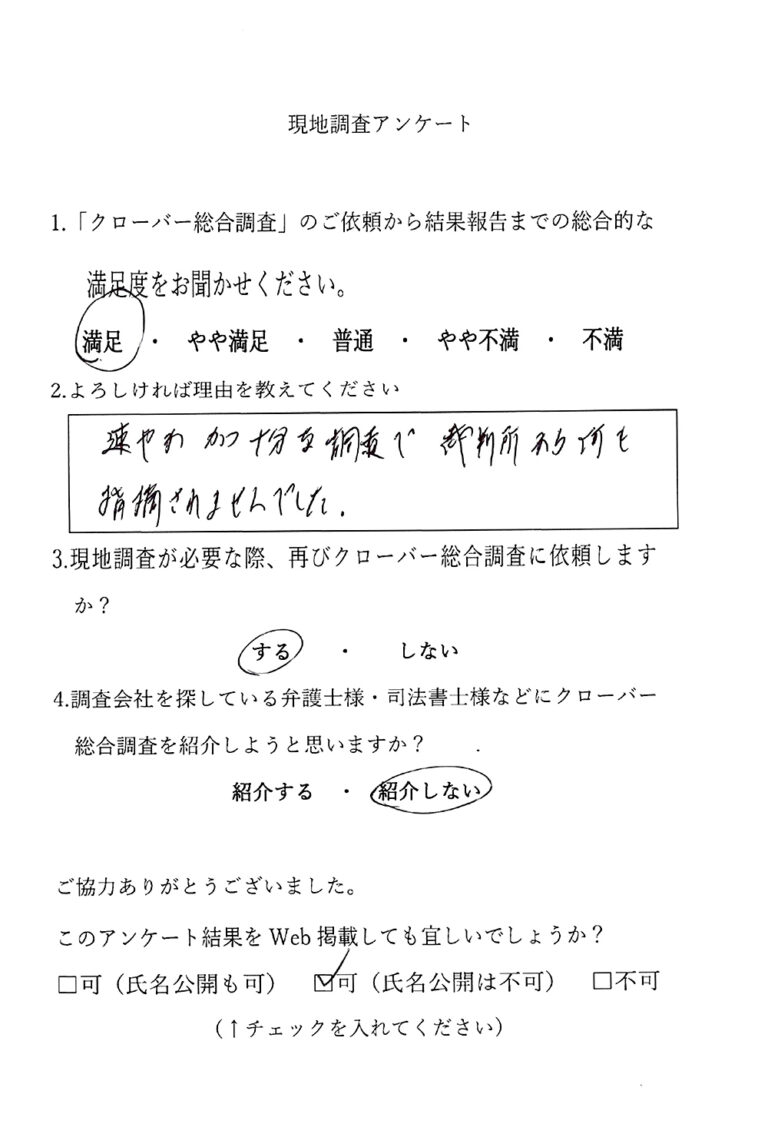 現地調査アンケート
1.「クローバー総合調査」のご依頼から結果報告までの総合的な
満足度をお聞かせください。
満足 ・ やや満足 ・ 普通 ・ やや不満 ・ 不満
2.よろしければ理由を教えてください
速やか かつ 十分な調査で 裁判所から何も
指摘されませんでした.
3.現地調査が必要な際、再びクローバー総合調査に依頼します
か？
する ・ しない
4.調査会社を探している弁護士様・司法書士様などにクローバー
総合調査を紹介しようと思いますか？
紹介する ・ 紹介しない
ご協力ありがとうございました。
このアンケート結果を Web 掲載しても宜しいでしょうか？
□可（氏名公開も可） ☑可（氏名公開は不可） □不可
（↑チェックを入れてください）